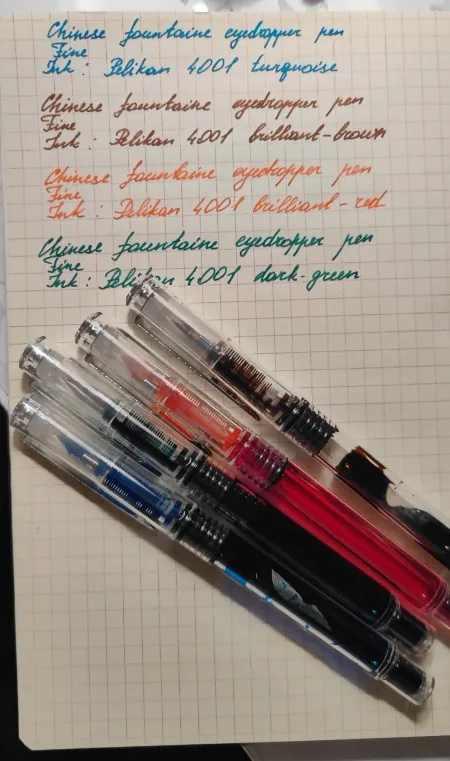 Chinese fountaine eyedropper pen
Fine
Ink: Pelikan 4001 turquoise
Chinese fountaine eyedropper pen
Fine
Ink: Pelikan 4001 brilliant-brown
Chinese fountaine eyedropper pen
Fine
Ink: Pelikan 4001 brilliant-red
Chinese fountaine eyedropper pen
Fine
Ink: Pelikan 4001 dark-green